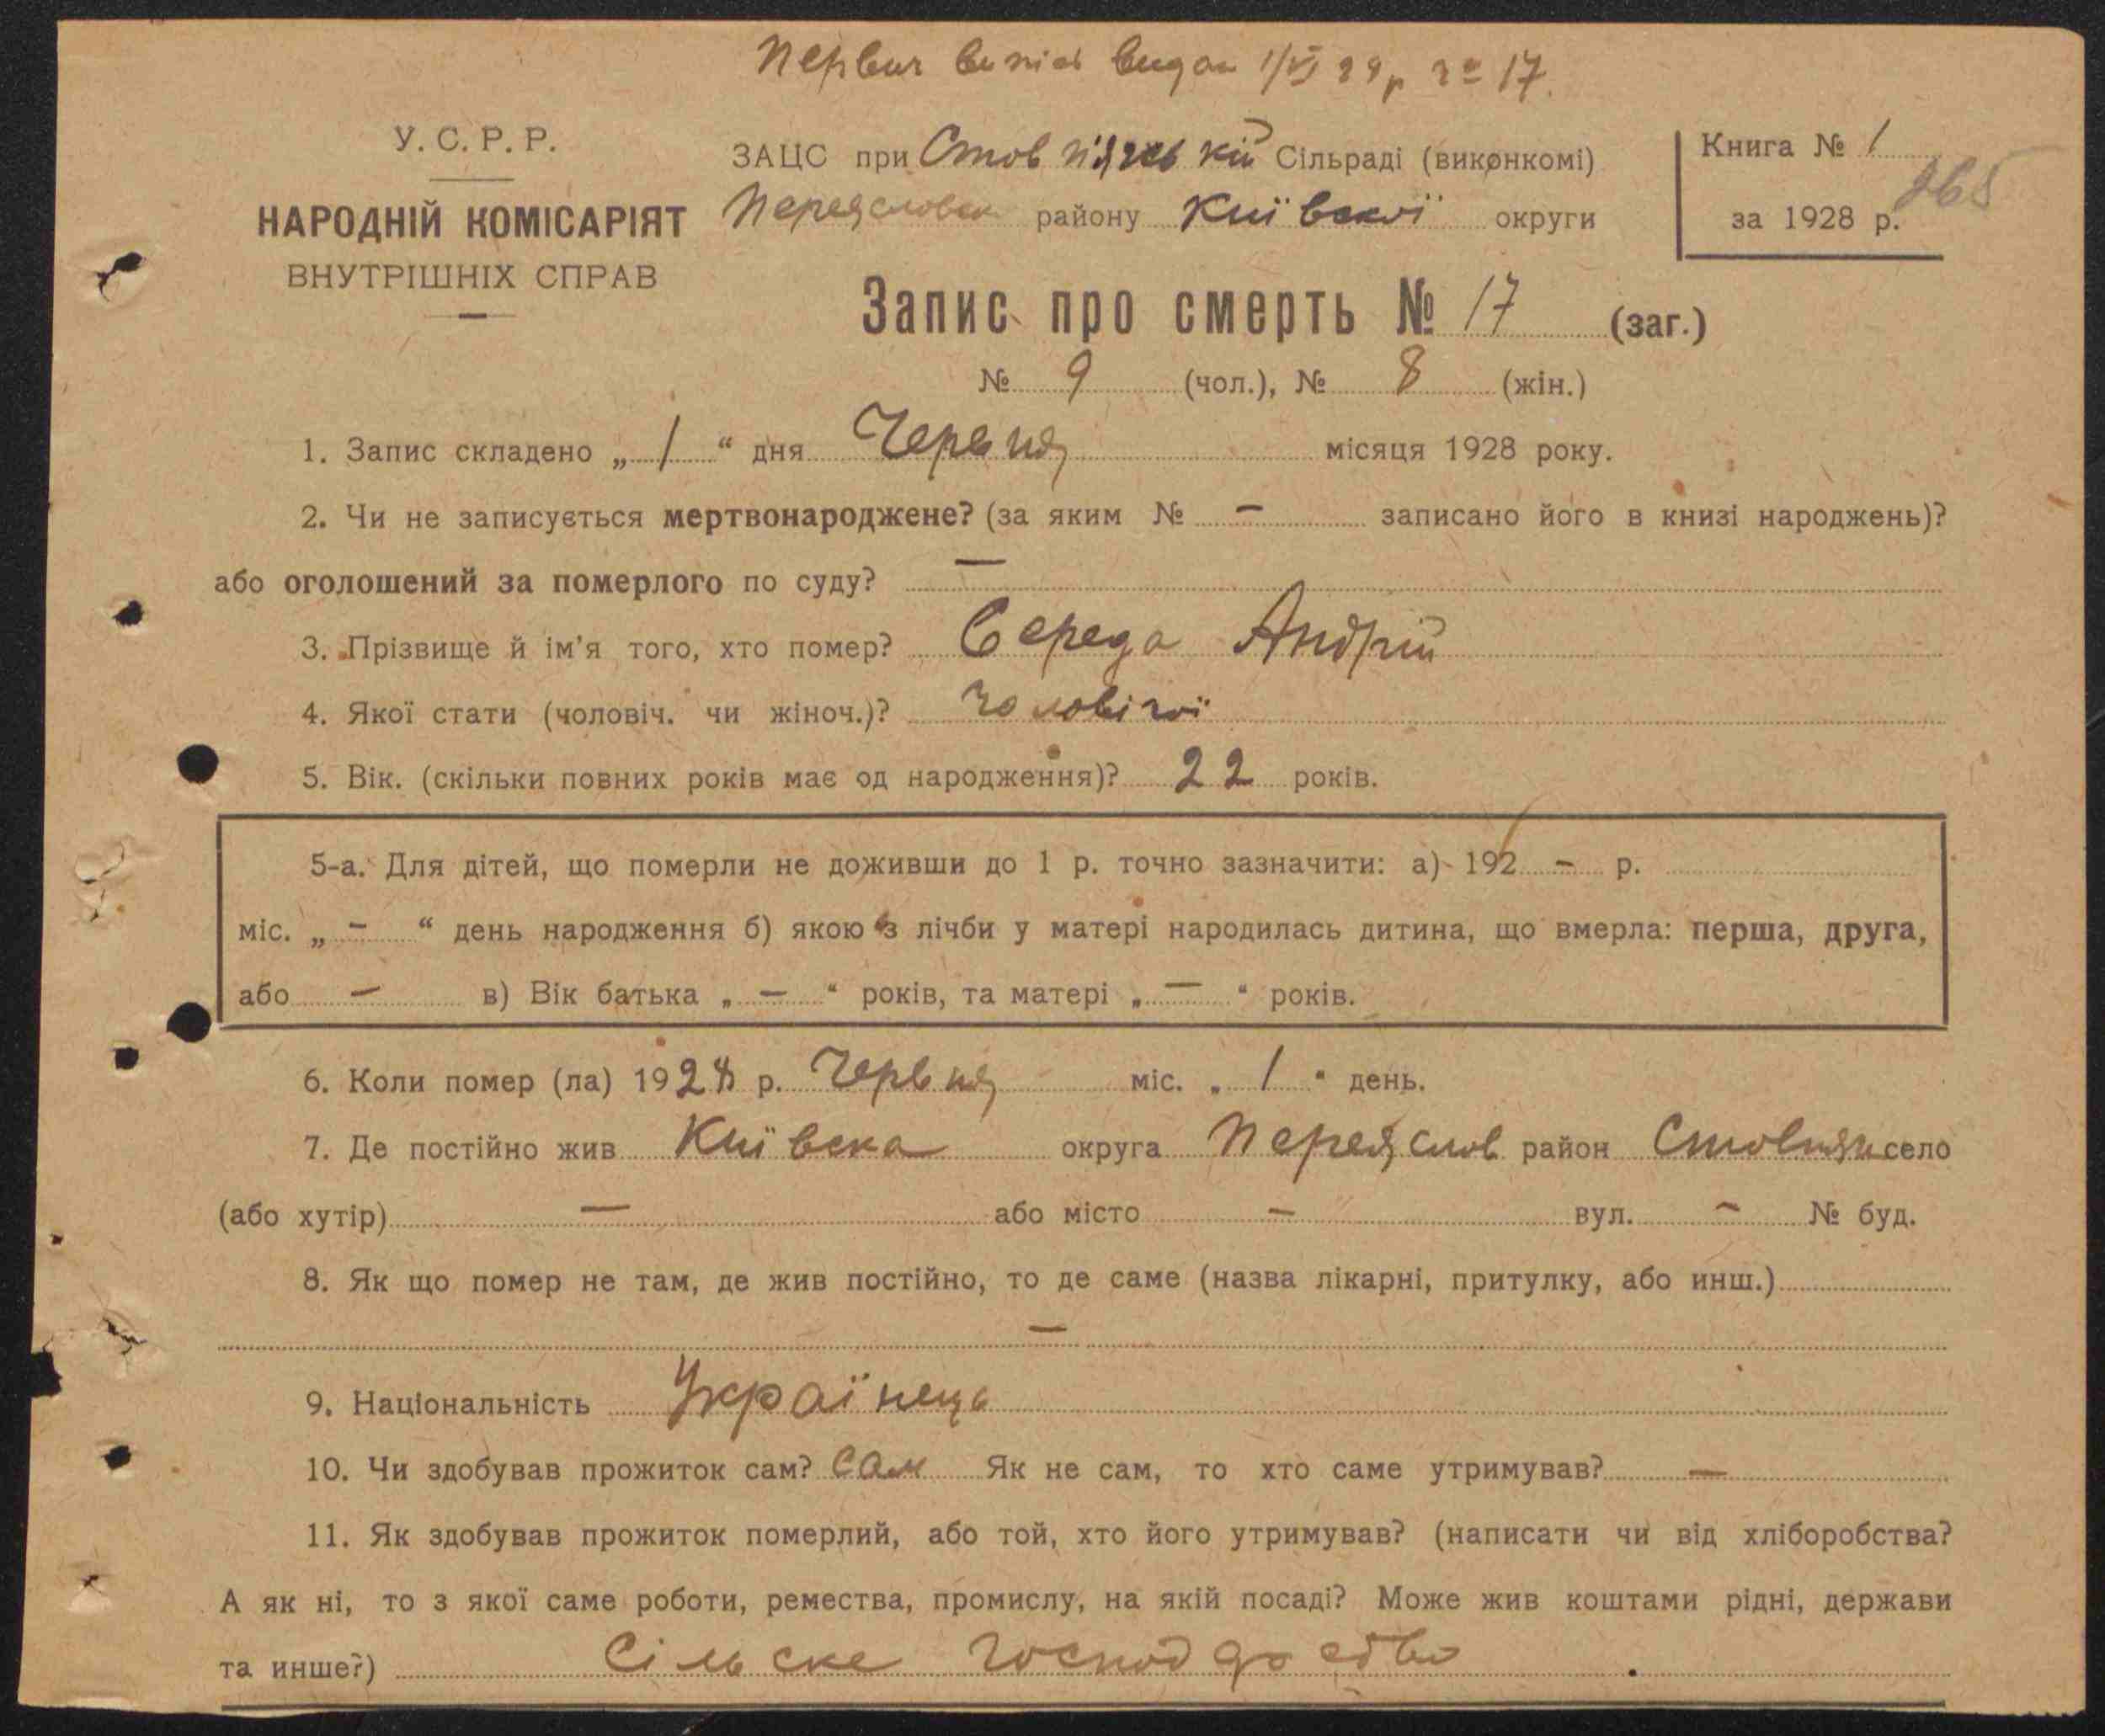 Первич випис видан 1/VI 29 р № 17.
У. С. Р. Р.
НАРОДНІЙ КОМІСАРІЯТ
ВНУТРІШНІХ СПРАВ
ЗАЦС при Стовп'ягській Сільраді (виконкомі)
Переяславськ району Київскої округи
Книга № 1
за 1928 р.
265
Запис про смерть № 17 (заг.)
№ 9 (чол.), № 8 (жін.)
1. Запис складено „ 1 “ дня Червня місяця 1928 року.
2. Чи не записується мертвонароджене? (за яким № — записано його в книзі народжень)?
або оголошений за померлого по суду? —
3. Прізвище й ім'я того, хто помер? Середа Андрій
4. Якої стати (чоловіч. чи жіноч.)? чоловічої
5. Вік. (скільки повних років має од народження)? 22 років.
5-а. Для дітей, що померли не доживши до 1 р. точно зазначити: а) 192 — р.
міс. „ — “ день народження б) якою з лічби у матері народилась дитина, що вмерла: перша, друга,
або — в) Вік батька „ — “ років, та матері „ — “ років.
6. Коли помер (ла) 1928 р. Червня міс. „ 1 “ день.
7. Де постійно жив Київска округа Переяслов район Стовпяги село
(або хутір) — або місто — вул. — № буд.
8. Як що помер не там, де жив постійно, то де саме (назва лікарні, притулку, або инш.)
—
9. Національність Українець
10. Чи здобував прожиток сам? сам Як не сам, то хто саме утримував? —
11. Як здобував прожиток померлий, або той, хто його утримував? (написати чи від хліборобства?
А як ні, то з якої саме роботи, ремества, промислу, на якій посаді? Може жив коштами рідні, держави
та инше?) Сільске господарство